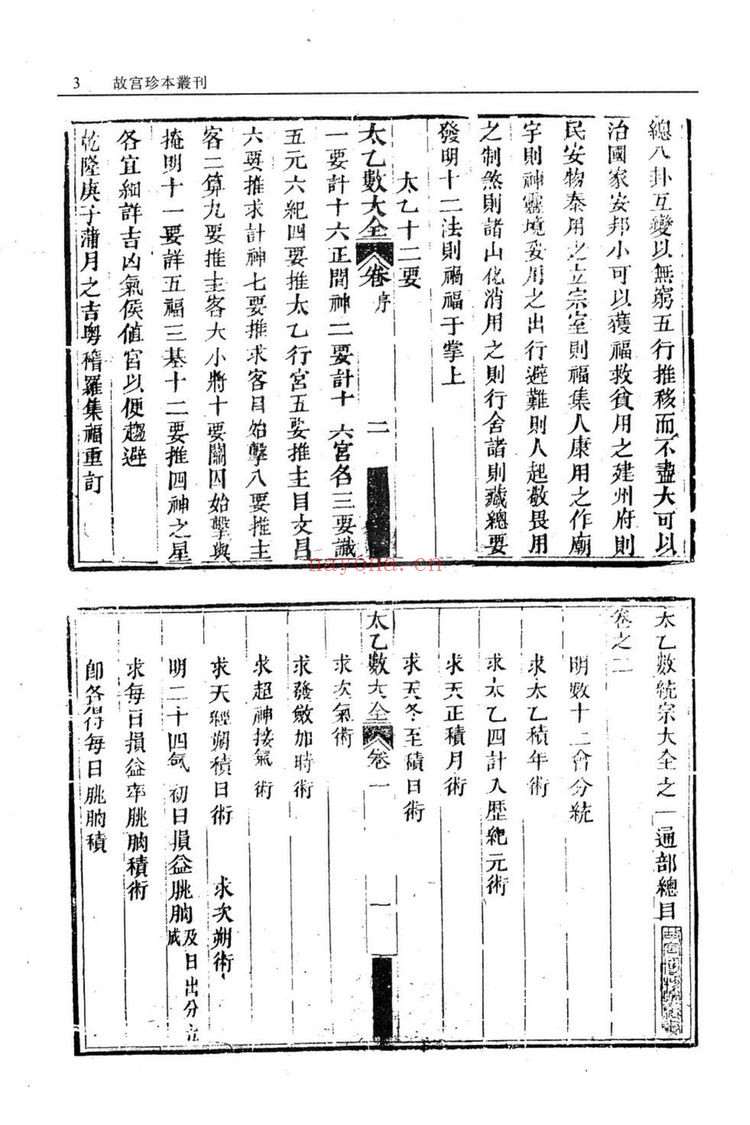 3 故宮珍本叢刊
總八卦互變以無窮五行推移而不盡大可以
治國家安邦小可以獲福救貧用之建州府則
民安物泰用之立宗室則福集人康用之作廟
宇則神靈境妥用之出行避難則人起敬畏用
之制煞則諸山化消用之則行舍諸則藏總要
發明十二法則禍福于掌上
太乙十二要
太乙數大全 卷序 二
一要計十六正間神二要計十六宮名三要識
五元六紀四要推太乙行宮五要推主目文昌
六要推求計神七要推求客目始擊八要推主
客二算九要推主客大小將十要關囚始擊與
掩明十一要詳五福三基十二要推四神之星
各宜細詳吉凶氣侯值宮以便趨避
乾隆庚子蒲月之吉粵稽羅集福重訂
nayona.cn
太乙數統宗大全之一通部總目
卷之二
明數十二會分統
求太乙積年術
求太乙四計入歷紀元術
求天正積月術
求天冬至積日術
太乙數大全 卷一 一
求次氣術
求發斂加時術
求超神接氣術
求天經朔積日術 求次朔術
明二十四氣初日損益朓朒及日出分立成
求每日損益率朓朒積術
卽各得每日朓朒積